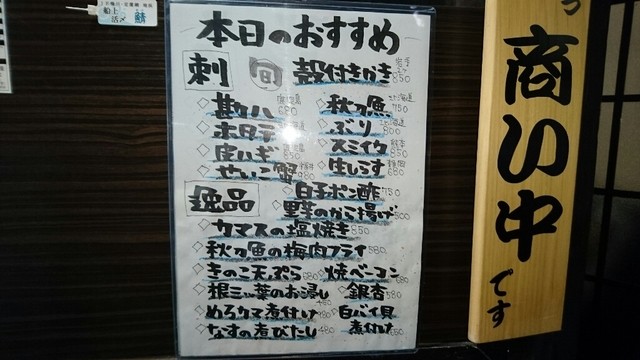 船上
活〆 鯖
本日のおすすめ
刺 旬 殻付きかき 岩手 850
勘八 680 秋刀魚 北海道 750
ホタテ ぶり 北海道 800
皮ハギ 850 スミイカ 850
せいこ蟹 980 生しらす 680
逸品 白子ポン酢 750
里芋のから揚げ 500
カマスの塩焼き 850
秋刀魚の梅肉フライ 580
きのこ天ぷら 焼ベーコン 680
根三ッ葉のお浸し 480 銀杏 580
めろカマ煮付け 白バイ貝
なすの煮びたし 480 煮付け
商い中です